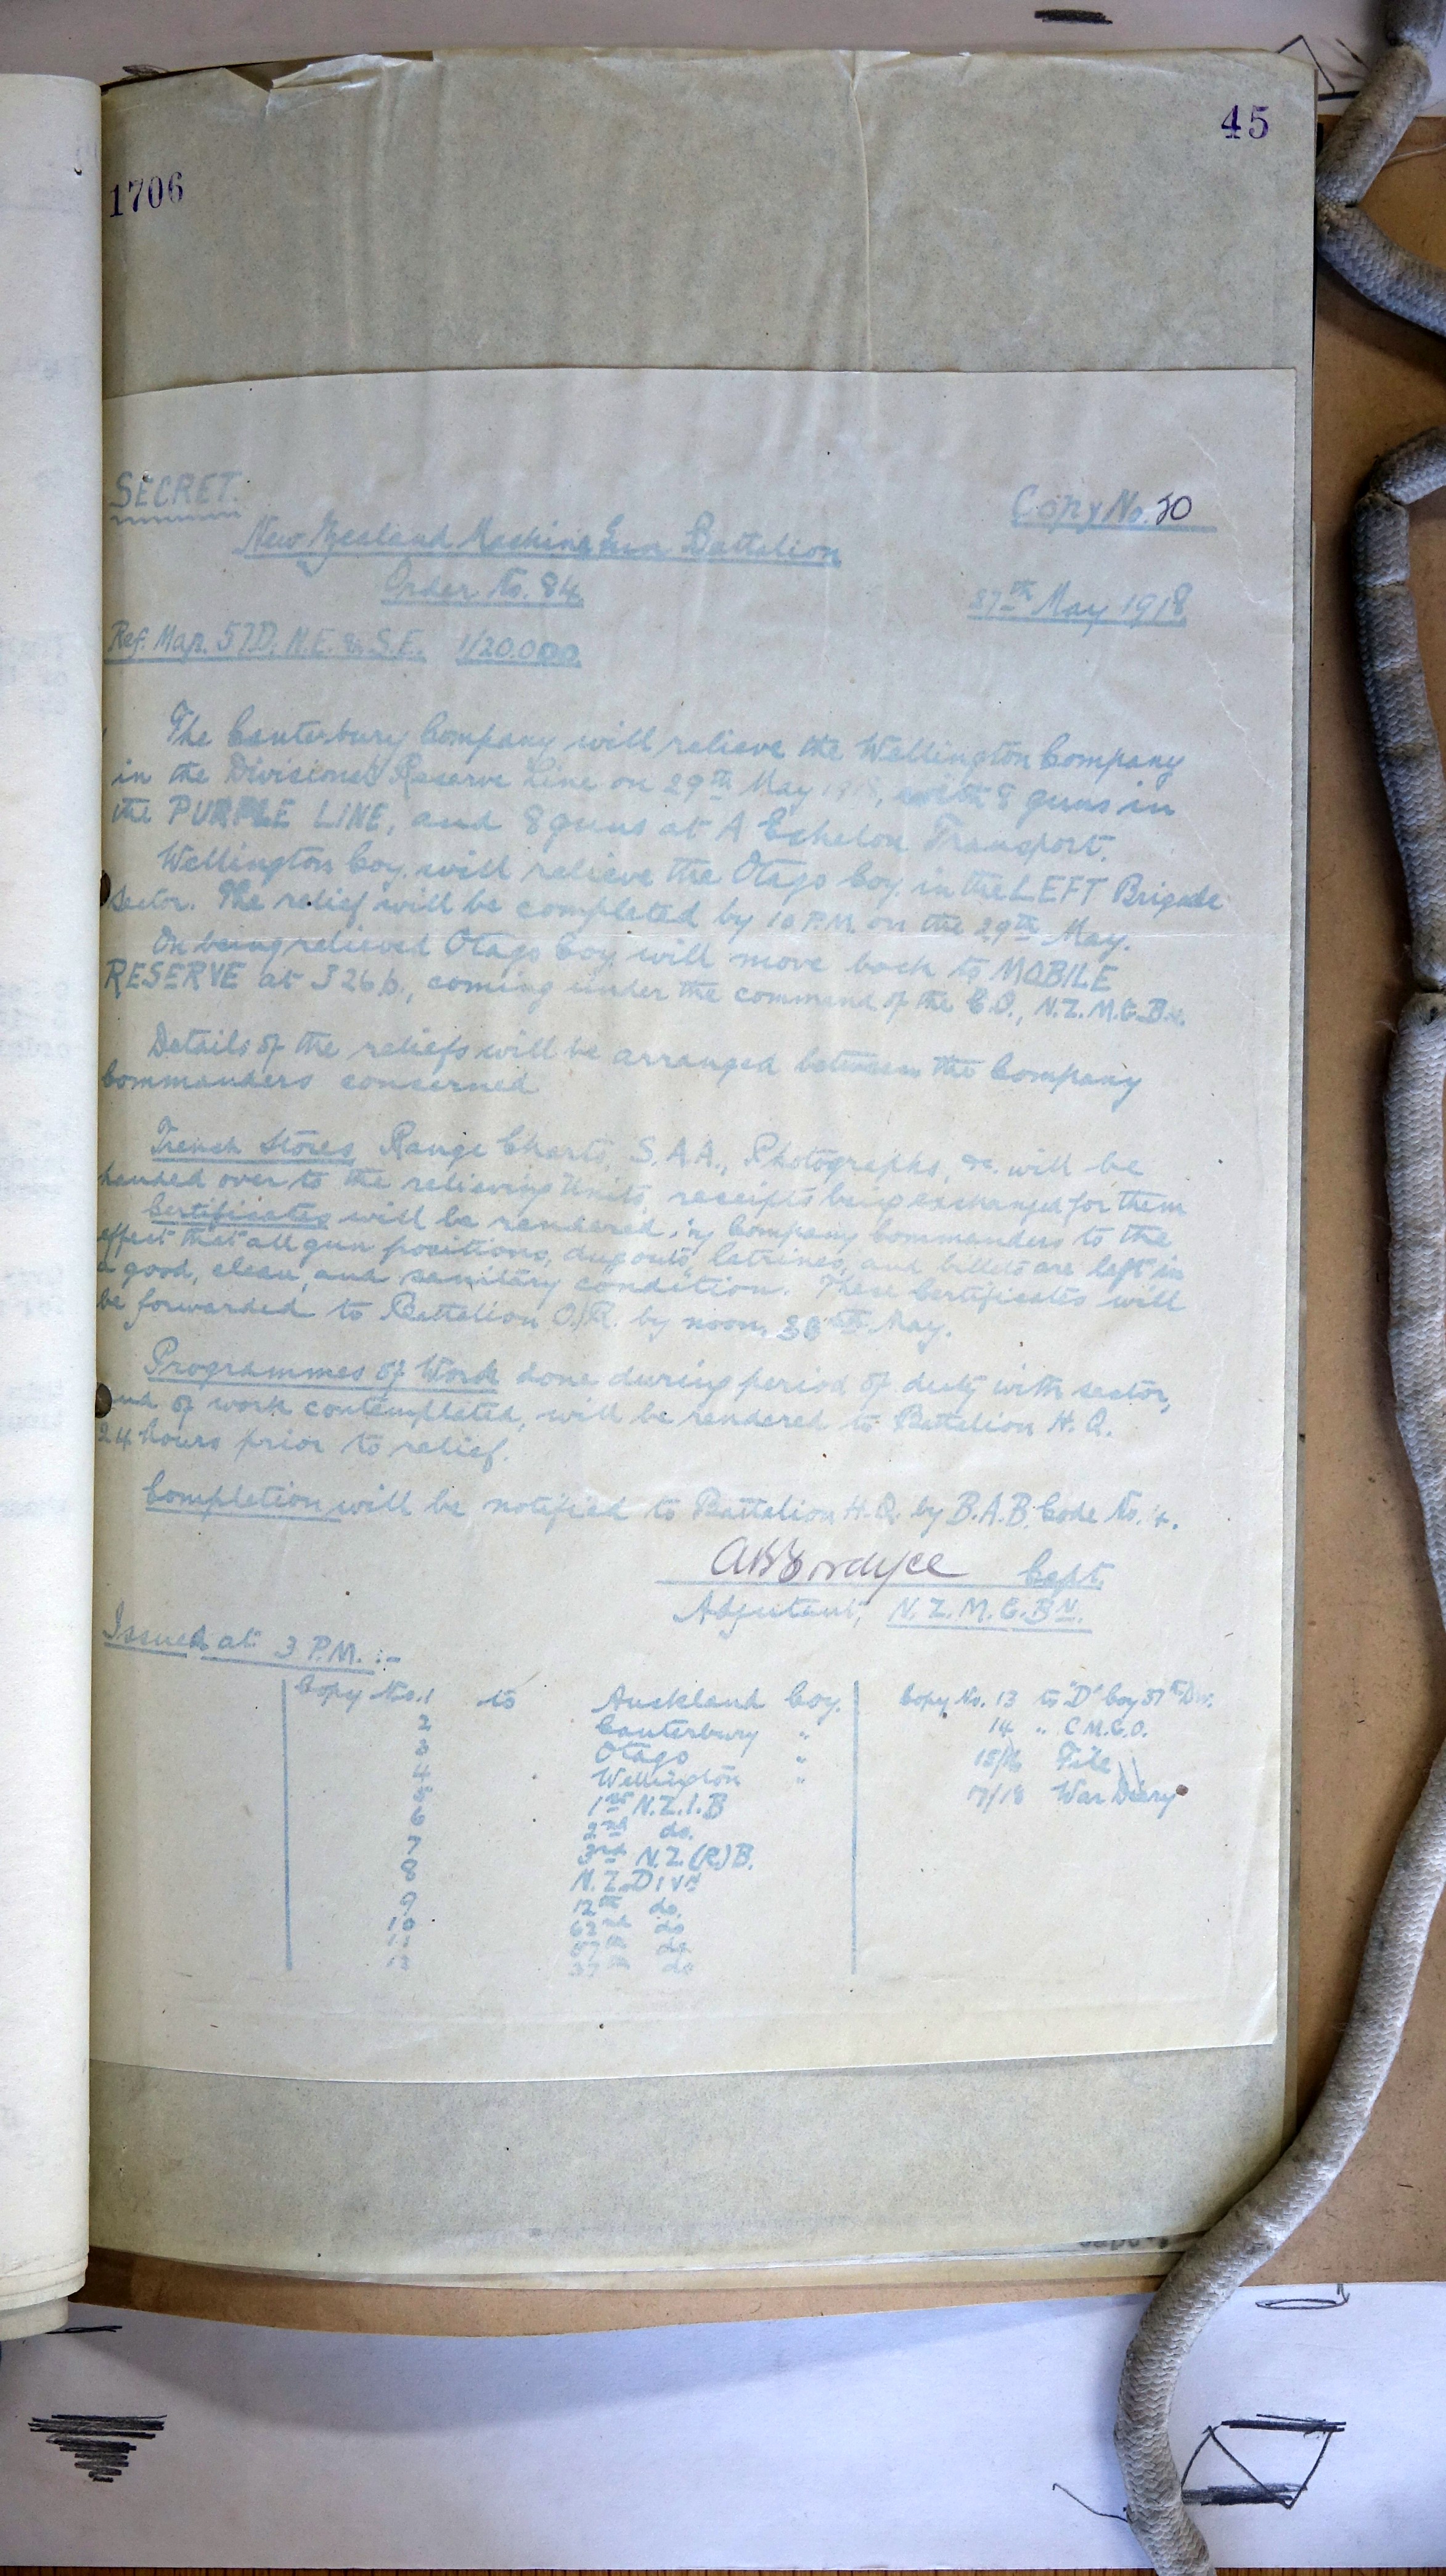 45
1706
SECRET.
Copy No. 20
New Zealand Machine Gun Battalion
Order No. 84
27th May 1918
Ref. Map. 57D. N.E. & S.E. 1/20.000
The Canterbury Company will relieve the Wellington Company
in the Divisional Reserve Line on 29th May 1918, with 8 guns in
the PURPLE LINE, and 8 guns at A Echelon Transport.
Wellington Coy. will relieve the Otago Coy. in the LEFT Brigade
Sector. The relief will be completed by 10 P.M. on the 29th May.
On being relieved Otago Coy. will move back to MOBILE
RESERVE at J 26 b., coming under the command of the C.O., N.Z.M.G.Bn.
Details of the reliefs will be arranged between the Company
Commanders concerned
Trench Stores, Range Charts, S.A.A., Photographs, &c. will be
handed over to the relieving Units, receipts being exchanged for them
Certificates will be rendered by Company Commanders to the
effect that all gun positions, dugouts, latrines, and billets are left in
a good, clean, and sanitary condition. These Certificates will
be forwarded to Battalion O/R. by noon, 30th May.
Programmes of Work done during period of duty with sector,
and of work contemplated, will be rendered to Battalion H.Q.
24 hours prior to relief.
Completion will be notified to Battalion H.Q. by B.A.B. Code No. 4.
Capt.
Adjutant, N.Z.M.G.BN.
Issued at 3 P.M. :-
Copy No. 1 to Auckland Coy. Copy No. 13 to "D" Coy 37th Div.
2 Canterbury " 14 " C.M.G.O.
3 Otago " 15/16 File
4 Wellington " 17/18 War Diary
5 1st N.Z.I.B
6 2nd do.
7 3rd N.Z.(R)B.
8 N.Z. Divn
9 12th do.
10 62nd do
11 57th do
12 37th do